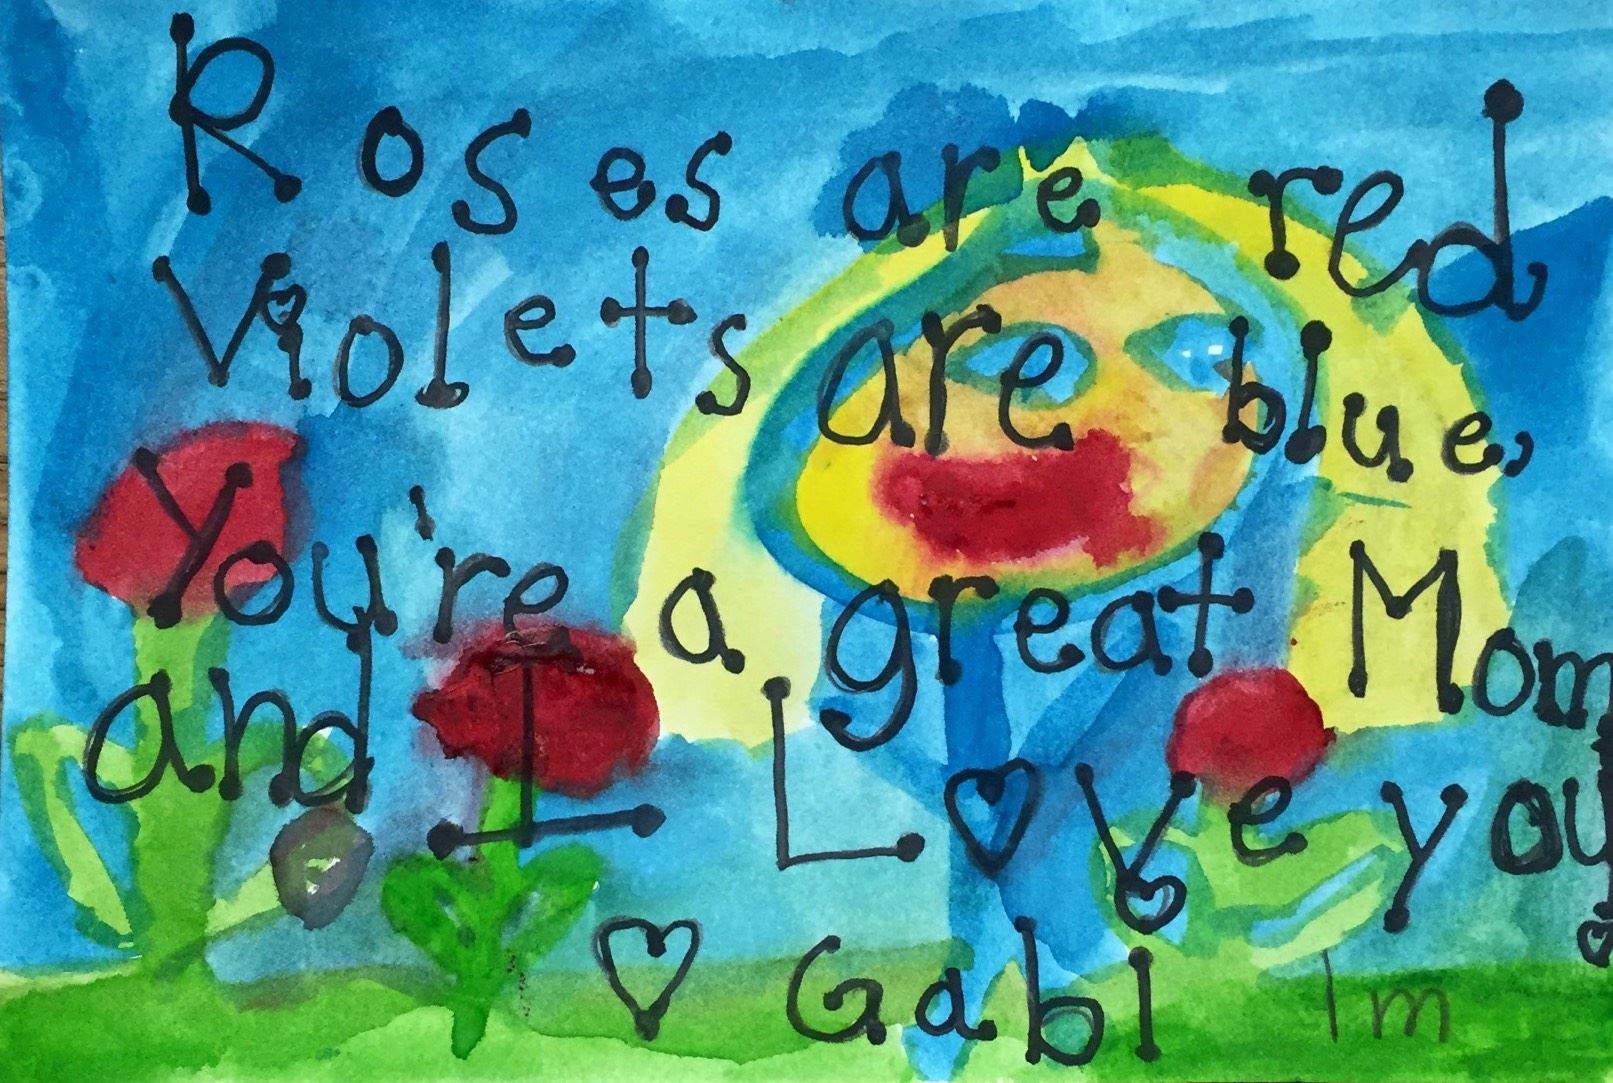 Roses are red
Violets are blue,
You're a great Mom
and I Love you!
Gabi 1m